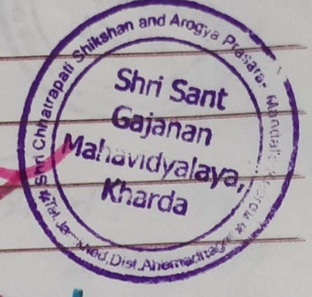 Shri Chhatrapati Shikshan and Arogya Prasarak Mandal
Shri Sant
Gajanan
Mahavidyalaya,
Kharda
Dist. Ahemadnagar